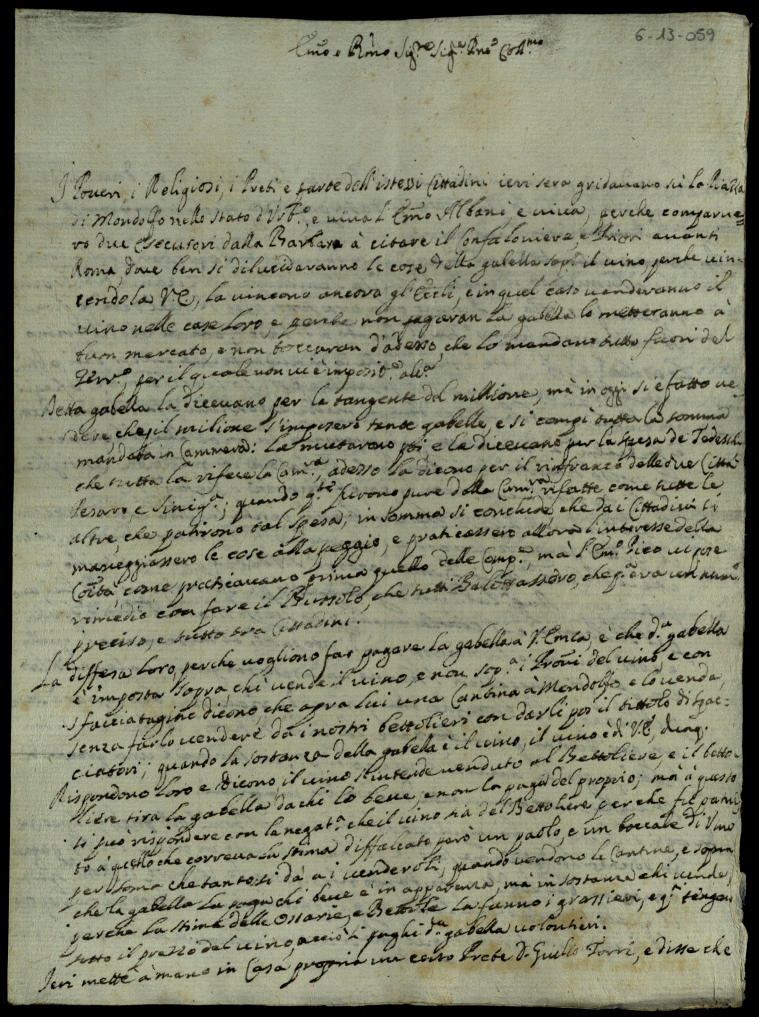 6-13-059
Emo e Rmo Sig.re Sig.re Pne Colmo
I Poveri, i Religiosi, i Preti e parte dell'istessi Cittadini ieri sera gridavano sù la Piazza
di Mondolfo nello stato d'Urb.o, e viva l'Emo Albani, e viva, perche comparve=
ro due esecutori dalla Barbara à citare il Confaloniere, e Priori avanti
Roma, dove ben si dilucidaranno le cose della gabella sop.a il vino, perche vin-
cendo la VE, la vincono ancora gl'Eccli, e in quel caso venderanno il
vino nelle case loro, e perche non pagaran la gabella lo metteranno à
buon mercato, e non toccaran d'adesso, che lo mandano tutto fuori del
Terr.o, per il quale non vi è imposit.e alc.a
Detta gabella la dicevano per la tangente del millione, mà in oggi si è fatto ve-
dere che p il milione s'imposero tante gabelle, e si compì tutta la somma
mandata in Cammera: La mutarono poi e la dicevano per la spesa de Tedeschi
che tutta la rifece la Cam.ra, adesso la dicono per il rinfranco delle due Città
Pesaro, e Sinig.a; quando q.te furono pure dalla Cam.ra rifatte come tutte le
altre, che patirono tal spesa; in somma si conclude che dai Cittadini si
maneggiassero le cose alla peggio, e praticassero allora l'interesse della
Coità come praticavano prima quello delle Comp.e, mà l'Emo Pico vi pose
rimedio con fare il Bussolo, che tutti
preciso, e tutto tra Cittadini.
La diffesa loro, perche vogliono far pagare la gabella à V. Emza è che d.a gabella
è imposta sopra chi vende il vino, e non sop.a i Proni del vino, e con
sfacciatagine dicono, che apra lui una Cantina à Mondolfo, e lo venda,
senza farlo vendere da i nostri bettolieri con darli poi il titolo di spac-
ciatori; quando la sostanza della gabella è il vino, il vino è di VE, dunq.
Rispondono loro e dicono il vino s'intende venduto al Bettoliere, e il betto-
liere tira la gabella da chi lo beve, e non la paga del proprio; mà à questo
si può rispondere con la negat.a che il vino sia del Bettoliere perche fù
to à quello che correva la stima diffalcato però un paolo, e un boccale di vino
per soma che tanto si dà a i venderoli, quando vendono le Cantine, e sopra
che la gabella la paga chi beve è in apparenza, mà in sostanza chi vende,
perche la stima delle Ostarie, e Bettole la fanno i grassieri, e q.i tengon
sotto il prezzo del vino, acciò si paghi d.a gabella volontieri.
Ieri mette à mano in Casa propria un certo Prete D. Torri, e disse che